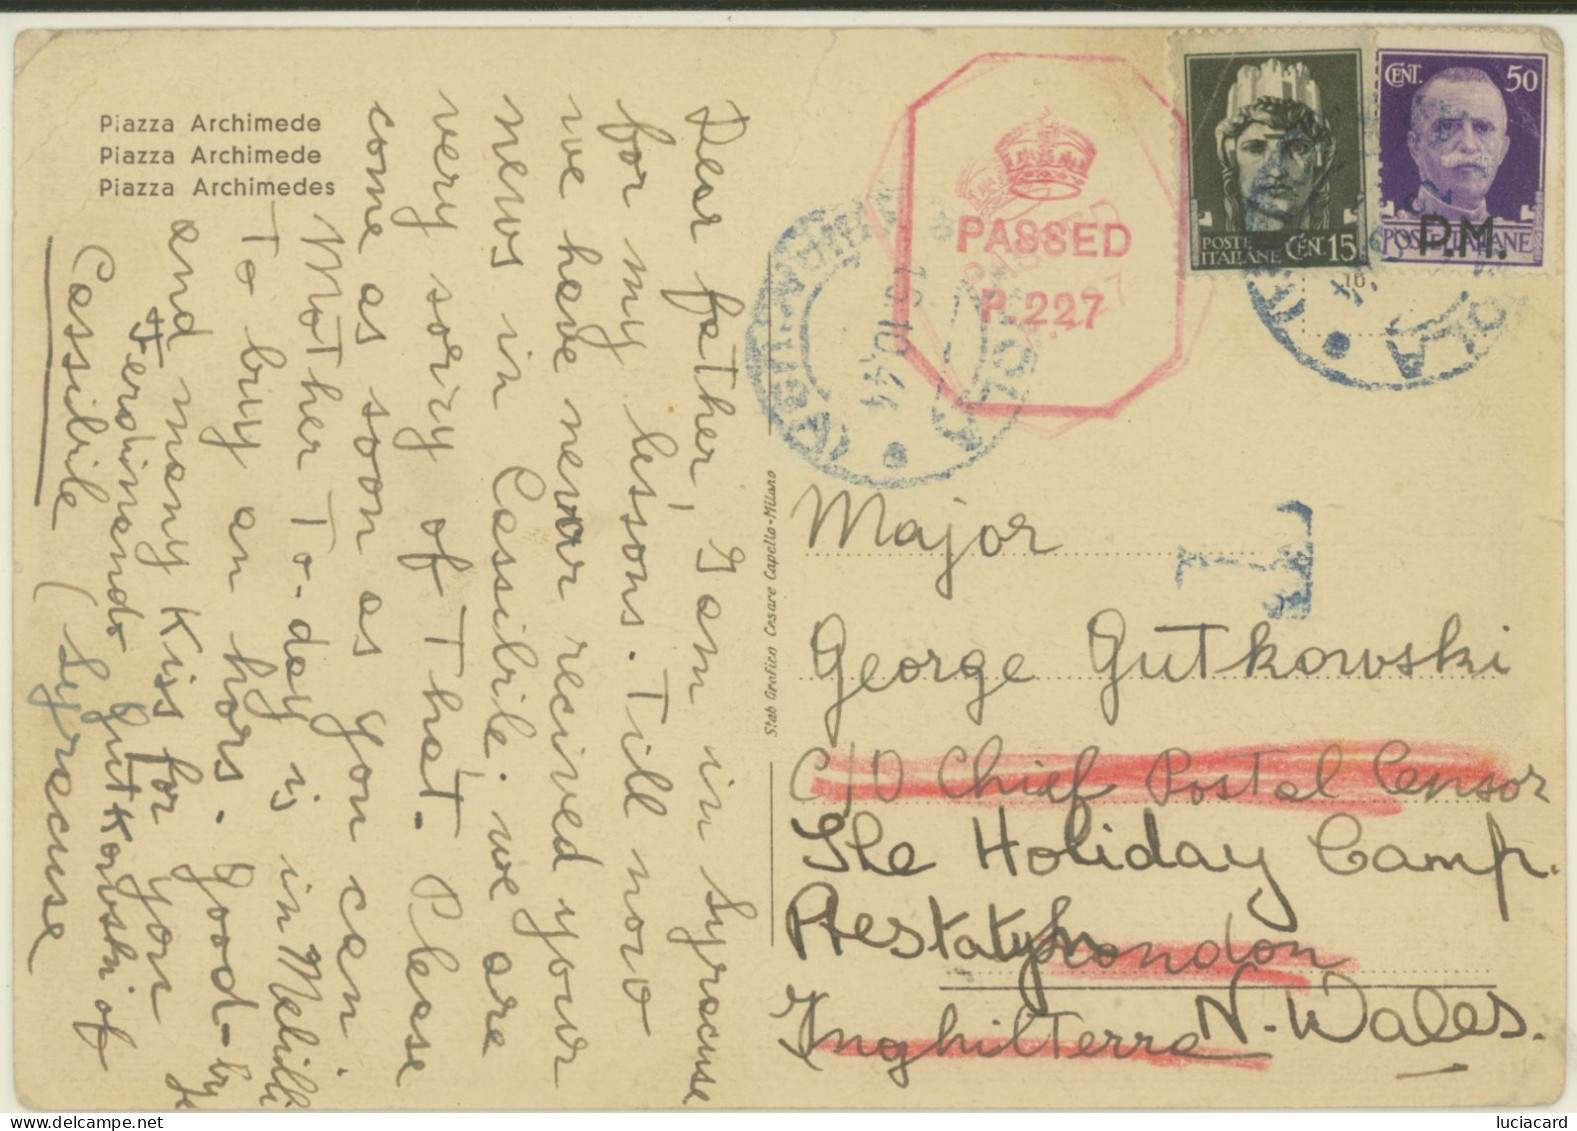 Piazza Archimede
Piazza Archimede
Piazza Archimedes
Dear father, I am in Syracuse
for my lessons. Till now
we have never received your
news in Cassibile. we are
very sorry of That. Please
come as soon as you can.
Mother To-day is in Melilli
To buy an hors. Good-by
and many Kiss for you
Ferdinando Gutkowski of
Cassibile (Syracuse
Stab Grafico Cesare Capello-Milano
PASSED
P.227
16.10.44
POSTE
ITALIANE
CENT 15
CENT. 50
POSTE ITALIANE
P.M.
T
Major
George Gutkowski
C/O Chief Postal Censor
The Holiday Camp.
London
N. Wales.
Inghilterra
luciacard